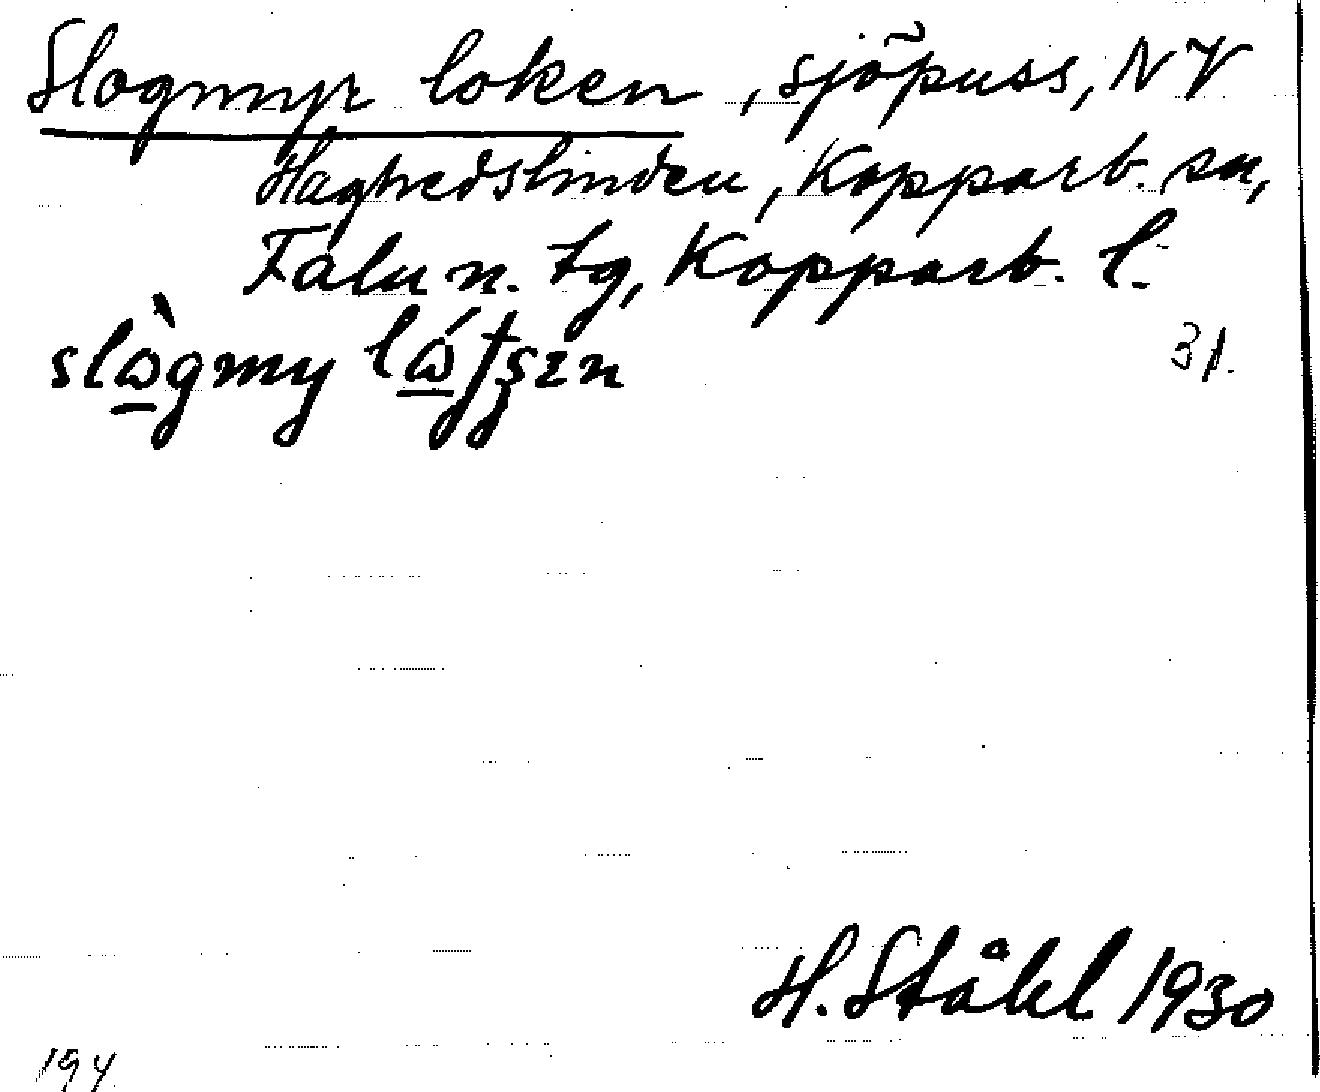 Slogmyr loken, sjöpuss, NV
Haghedslinden, Kopparb. sn,
Falu n. tg, Kopparb. l.
31.
H. Ståhl 1930
194